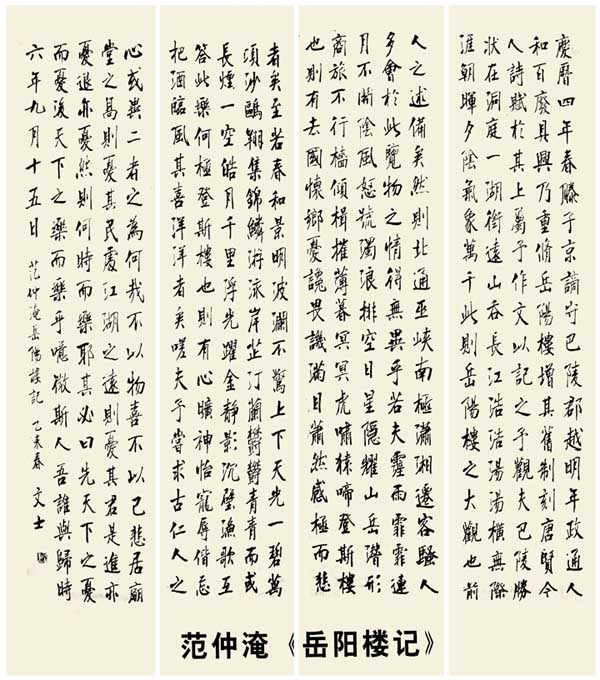 慶曆四年春滕子京謫守巴陵郡越明年政通人
和百廢具興乃重脩岳陽樓增其舊制刻唐賢今
人詩賦於其上屬予作文以記之予觀夫巴陵勝
狀在洞庭一湖銜遠山吞長江浩浩湯湯橫無際
涯朝暉夕陰氣象萬千此則岳陽樓之大觀也前
人之述備矣然則北通巫峽南極瀟湘遷客騷人
多會於此覽物之情得無異乎若夫霪雨霏霏連
月不開陰風怒號濁浪排空日星隱耀山岳潛形
商旅不行檣傾楫摧薄暮冥冥虎嘯猿啼登斯樓
也則有去國懷鄉憂讒畏譏滿目蕭然感極而悲
者矣至若春和景明波瀾不驚上下天光一碧萬
頃沙鷗翔集錦鱗游泳岸芷汀蘭鬱鬱青青而或
長煙一空皓月千里浮光躍金靜影沉璧漁歌互
答此樂何極登斯樓也則有心曠神怡寵辱偕忘
把酒臨風其喜洋洋者矣嗟夫予嘗求古仁人之
心或異二者之為何哉不以物喜不以己悲居廟
堂之高則憂其民處江湖之遠則憂其君是進亦
憂退亦憂然則何時而樂耶其必曰先天下之憂
而憂後天下之樂而樂乎噫微斯人吾誰與歸時
六年九月十五日 范仲淹岳陽樓記 乙未春 文士
范仲淹《岳阳楼记》